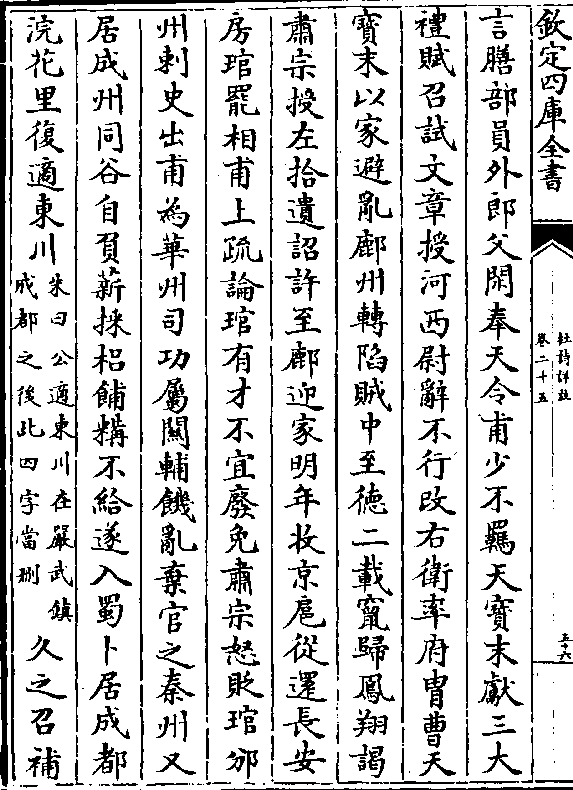 欽定四庫全書
杜詩詳註
卷二十五
五十六
言膳部員外郎父閑奉天令甫少不羈天寶末獻三大
禮賦召試文章授河西尉辭不行改右衛率府胄曹天
寶末以家避亂鄜州轉陷賊中至德二載竄歸鳳翔謁
肅宗授左拾遺詔許至鄜迎家明年收京扈從還長安
房琯罷相甫上疏論琯有才不宜廢免肅宗怒貶琯邠
州刺史出甫為華州司功屬關輔饑亂棄官之秦州又
居成州同谷自負薪採梠餔糒不給遂入蜀卜居成都
浣花里復適東川
朱曰公適東川在嚴武鎮
成都之後此四字當刪
久之召補